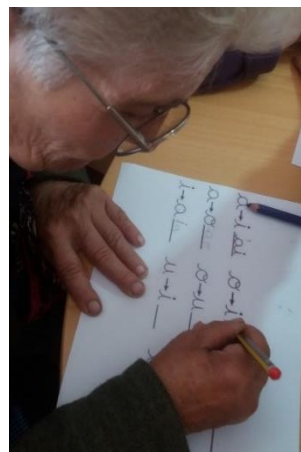 a→i ai o→i
a→o o→u _
i→a _ u→i _